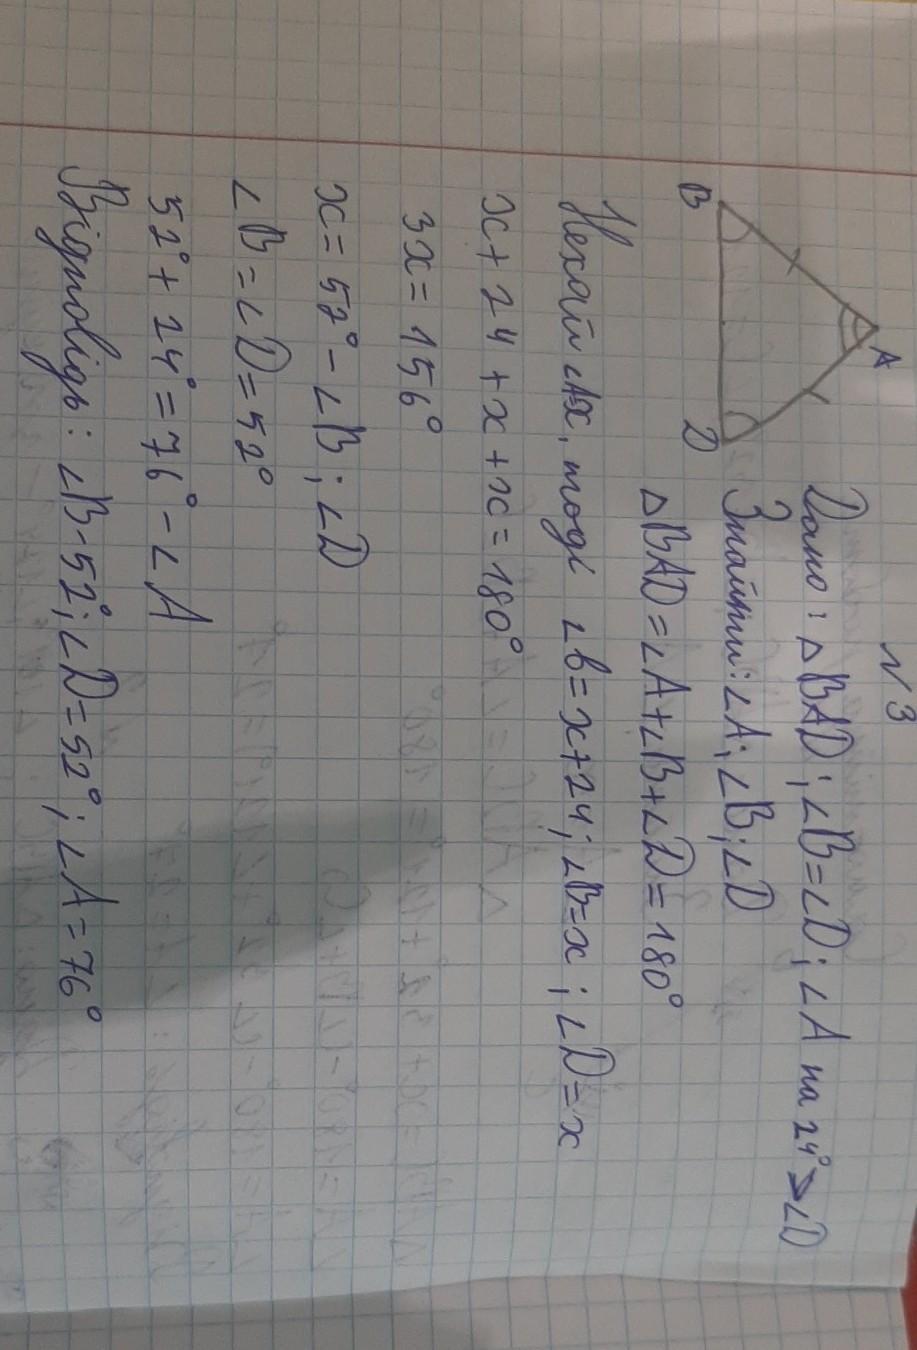 N 3
A
B
D
Дано: △BAD; ∠B=∠D; ∠A на 24°>∠D
Знайти: ∠A; ∠B; ∠D
△BAD=∠A+∠B+∠D=180°
Нехай ∠Ax, тоді ∠b=x+24; ∠B=x; ∠D=x
x+24+x+x=180°
3x=156°
x=52°-∠B; ∠D
∠B=∠D=52°
52°+24°=76°-∠A
Відповідь: ∠B-52°; ∠D=52°; ∠A=76°